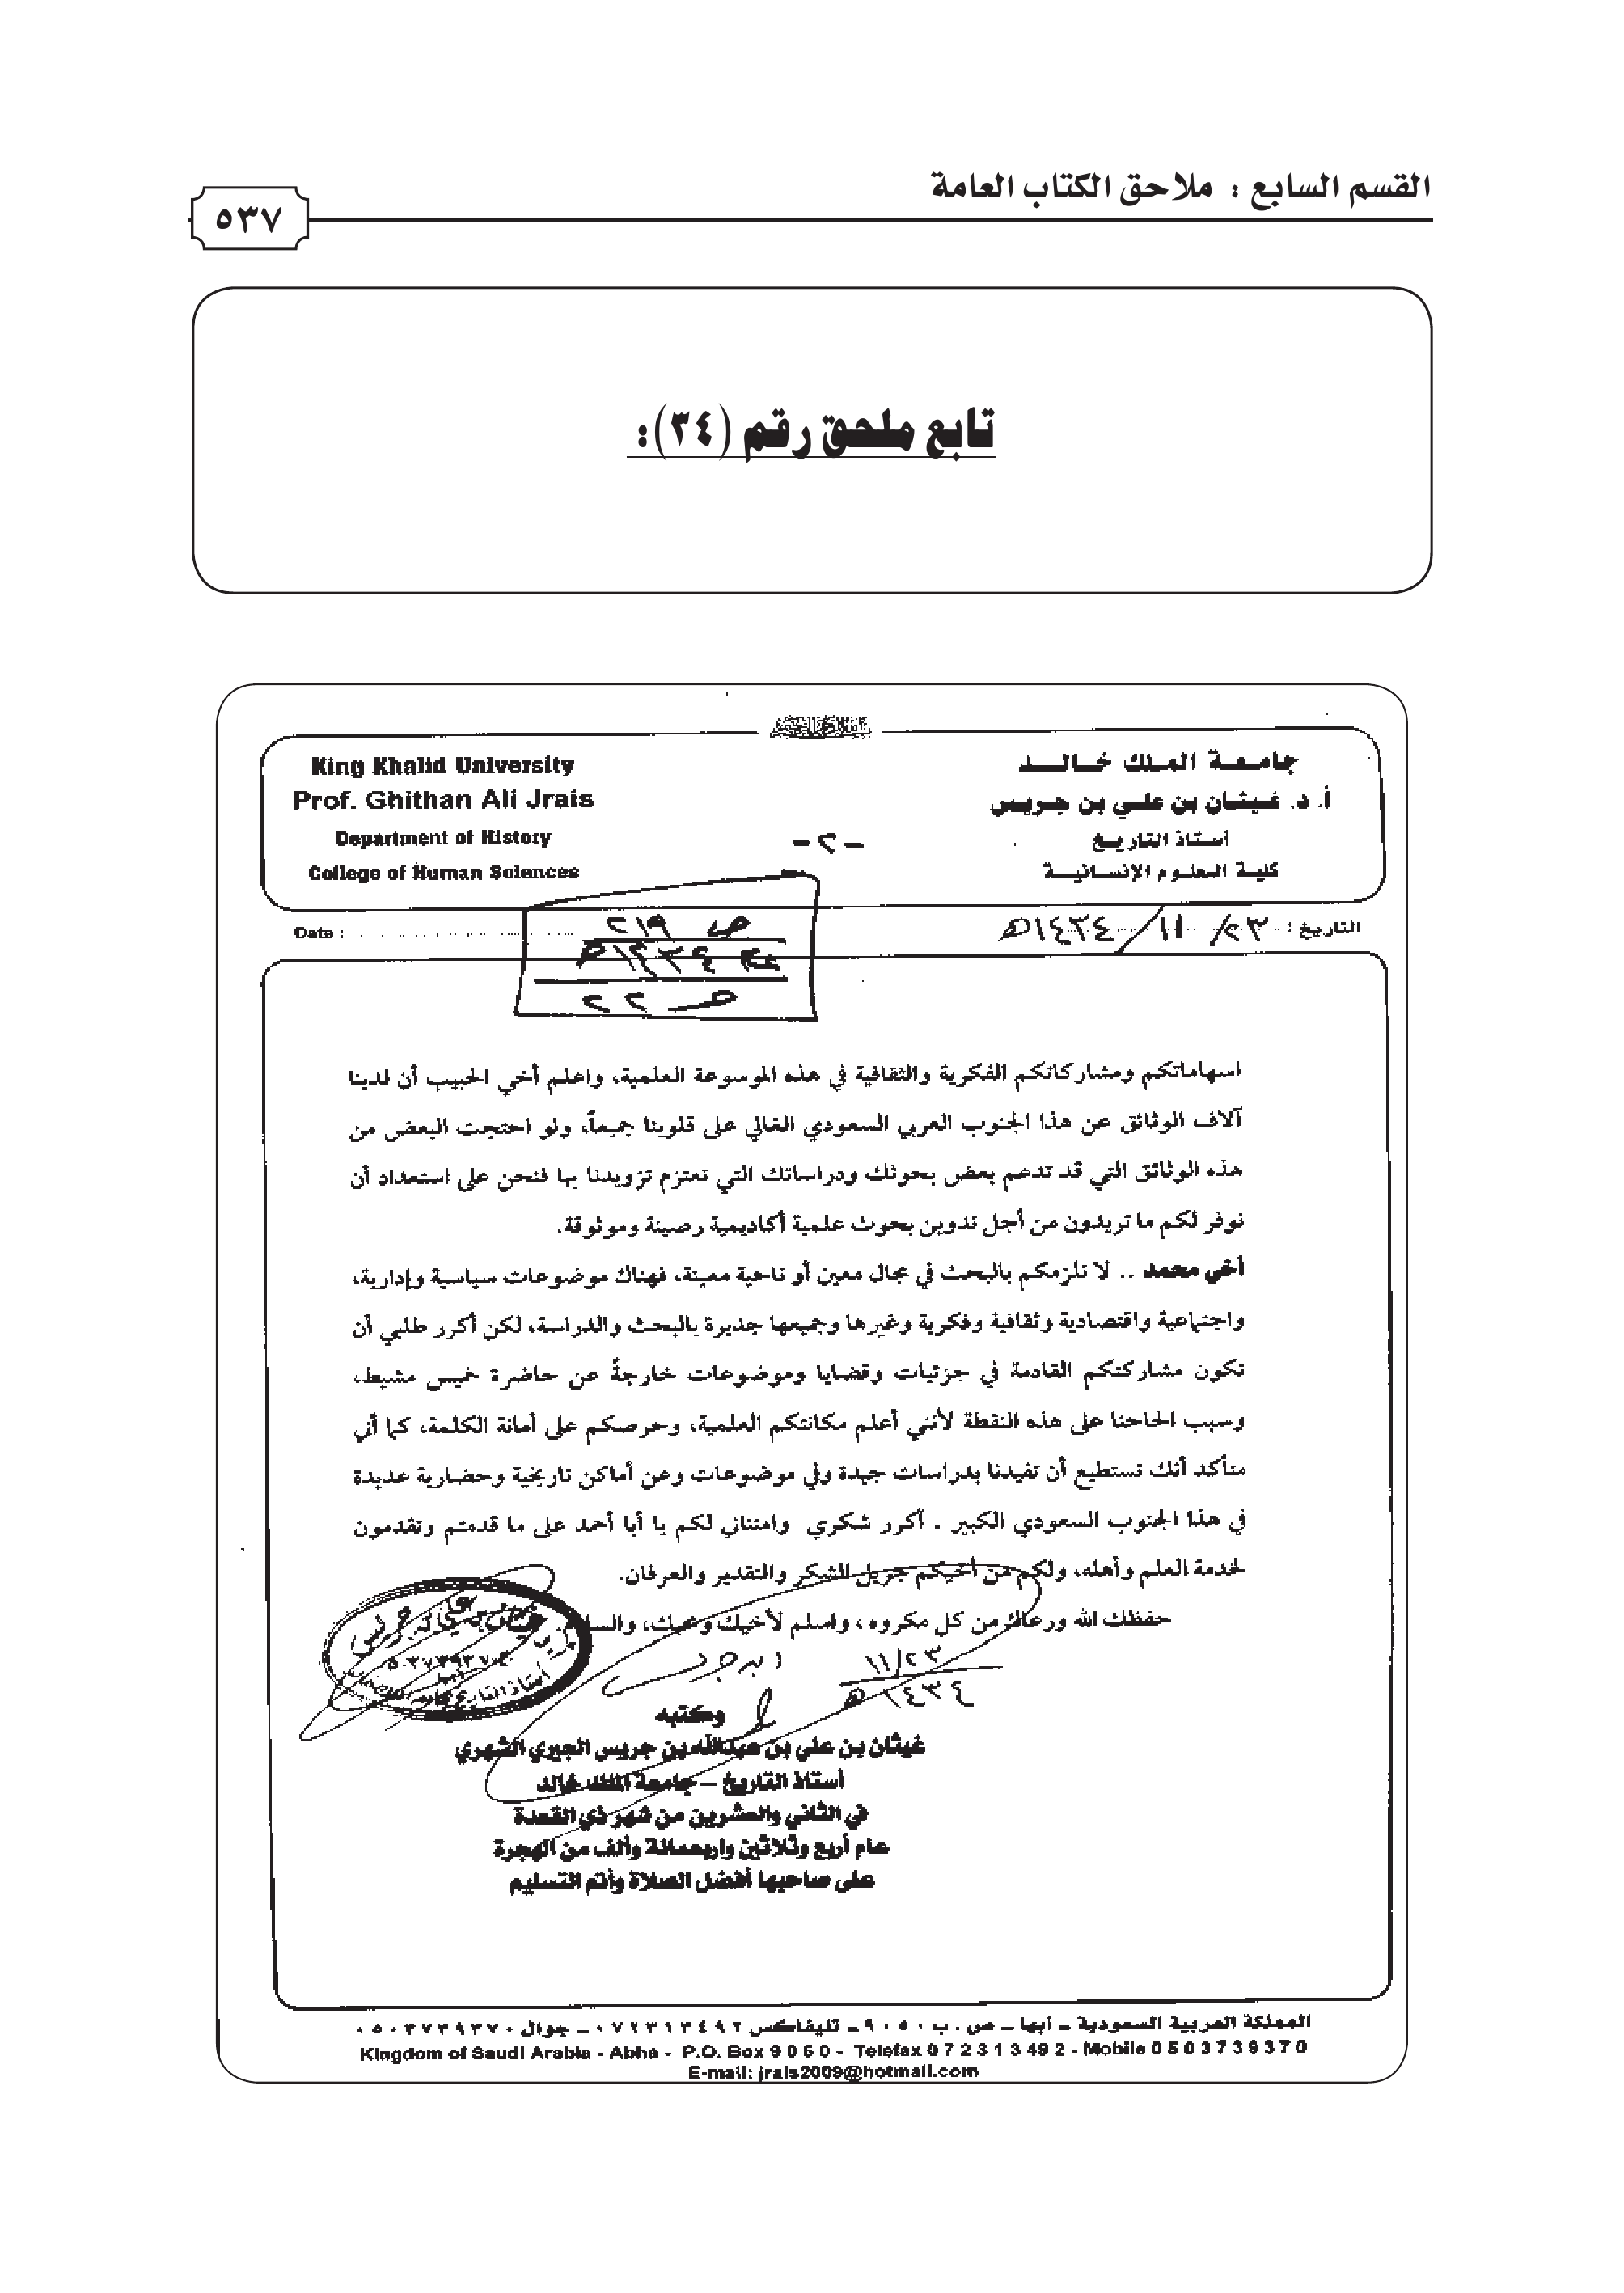 القسم السابع : ملاحق الكتاب العامة
٥٣٧
تابع ملحق رقم (٣٤):
King Khalid University
Prof. Ghithan Ali Jrais
Department of History
College of Human Sciences
جامعة الملك خالد
أ. د. غيثان بن علي بن جريس
أستاذ التاريخ
كلية العلوم الإنسانية
-٢-
Date :
التاريخ : ٢٣/ ١١/ ١٤٣٤هـ
ص ٢١٩
ع ١٤٣٤هـ
ص ٢٢
اسهاماتكم ومشاركاتكم الفكرية والثقافية في هذه الموسوعة العلمية، واعلم أخي الحبيب أن لدينا
آلاف الوثائق عن هذا الجنوب العربي السعودي الغالي على قلوبنا جميعاً، ولو احتجت البعض من
هذه الوثائق التي قد تدعم بعض بحوثك ودراساتك التي تعتزم تزويدنا بها فنحن على استعداد أن
نوفر لكم ما تريدون من أجل تدوين بحوث علمية أكاديمية رصينة وموثوقة.
أخي محمد .. لا نلزمكم بالبحث في مجال معين أو ناحية معينة، فهناك موضوعات سياسية وإدارية،
واجتماعية واقتصادية وثقافية وفكرية وغيرها وجميعها جديرة بالبحث والدراسة، لكن أكرر طلبي أن
تكون مشاركتكم القادمة في جزئيات وقضايا وموضوعات خارجةً عن حاضرة خميس مشيط،
وسبب الحاحنا على هذه النقطة لأنني أعلم مكانتكم العلمية، وحرصكم على أمانة الكلمة، كما أني
متأكد أنك تستطيع أن تفيدنا بدراسات جيدة وفي موضوعات وعن أماكن تاريخية وحضارية عديدة
في هذا الجنوب السعودي الكبير . أكرر شكري وامتناني لكم يا أبا أحمد على ما قدمتم وتقدمون
لخدمة العلم وأهله، ولكم من أخيكم جزيل الشكر والتقدير والعرفان.
حفظك الله ورعاك من كل مكروه، واسلم لأخيك ومحبك، والسلام.
ابن جريس
٢٣/١١
١٤٣٤هـ
وكتبه
غيثان بن علي بن عبدالله بن جريس الجبيري الشهري
أستاذ التاريخ – جامعة الملك خالد
في الثاني والعشرين من شهر ذي القعدة
عام أربع وثلاثين وأربعمائة وألف من الهجرة
على صاحبها أفضل الصلاة وأتم التسليم
المملكة العربية السعودية ـ أبها ـ ص . ب ٩٠٥٠ ـ تليفاكس ٠٧٢٣١٣٤٩٢ ـ جوال ٠٥٠٣٧٣٩٣٧٠
Kingdom of Saudi Arabia - Abha - P.O. Box 9 0 5 0 - Telefax 0 7 2 3 1 3 49 2 - Mobile 0 5 0 3 7 3 9 3 7 0
E-mail: jrais2009@hotmail.com